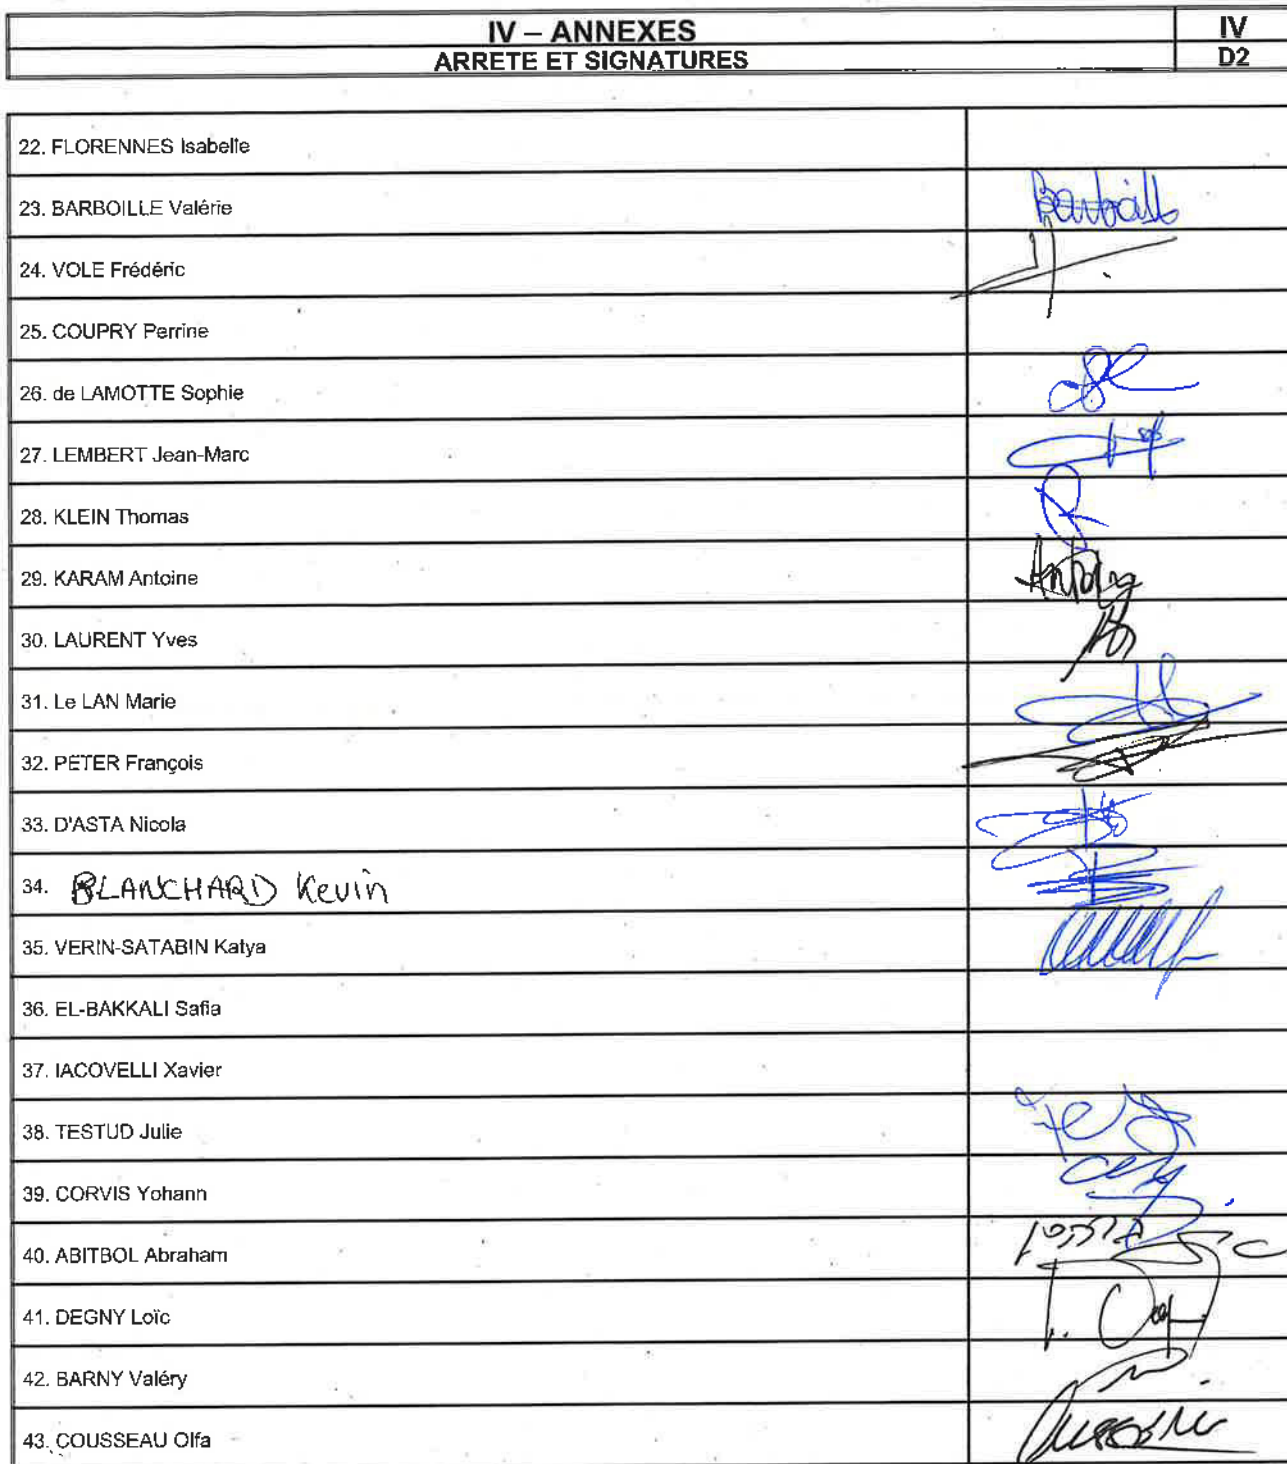 IV – ANNEXES
IV
ARRETE ET SIGNATURES
D2
22. FLORENNES Isabelle
23. BARBOILLE Valérie
24. VOLE Frédéric
25. COUPRY Perrine
26. de LAMOTTE Sophie
27. LEMBERT Jean-Marc
28. KLEIN Thomas
29. KARAM Antoine
30. LAURENT Yves
31. Le LAN Marie
32. PETER François
33. D'ASTA Nicola
34. BLANCHARD Kevin
35. VERIN-SATABIN Katya
36. EL-BAKKALI Safia
37. IACOVELLI Xavier
38. TESTUD Julie
39. CORVIS Yohann
40. ABITBOL Abraham
41. DEGNY Loïc
42. BARNY Valéry
43. COUSSEAU Olfa